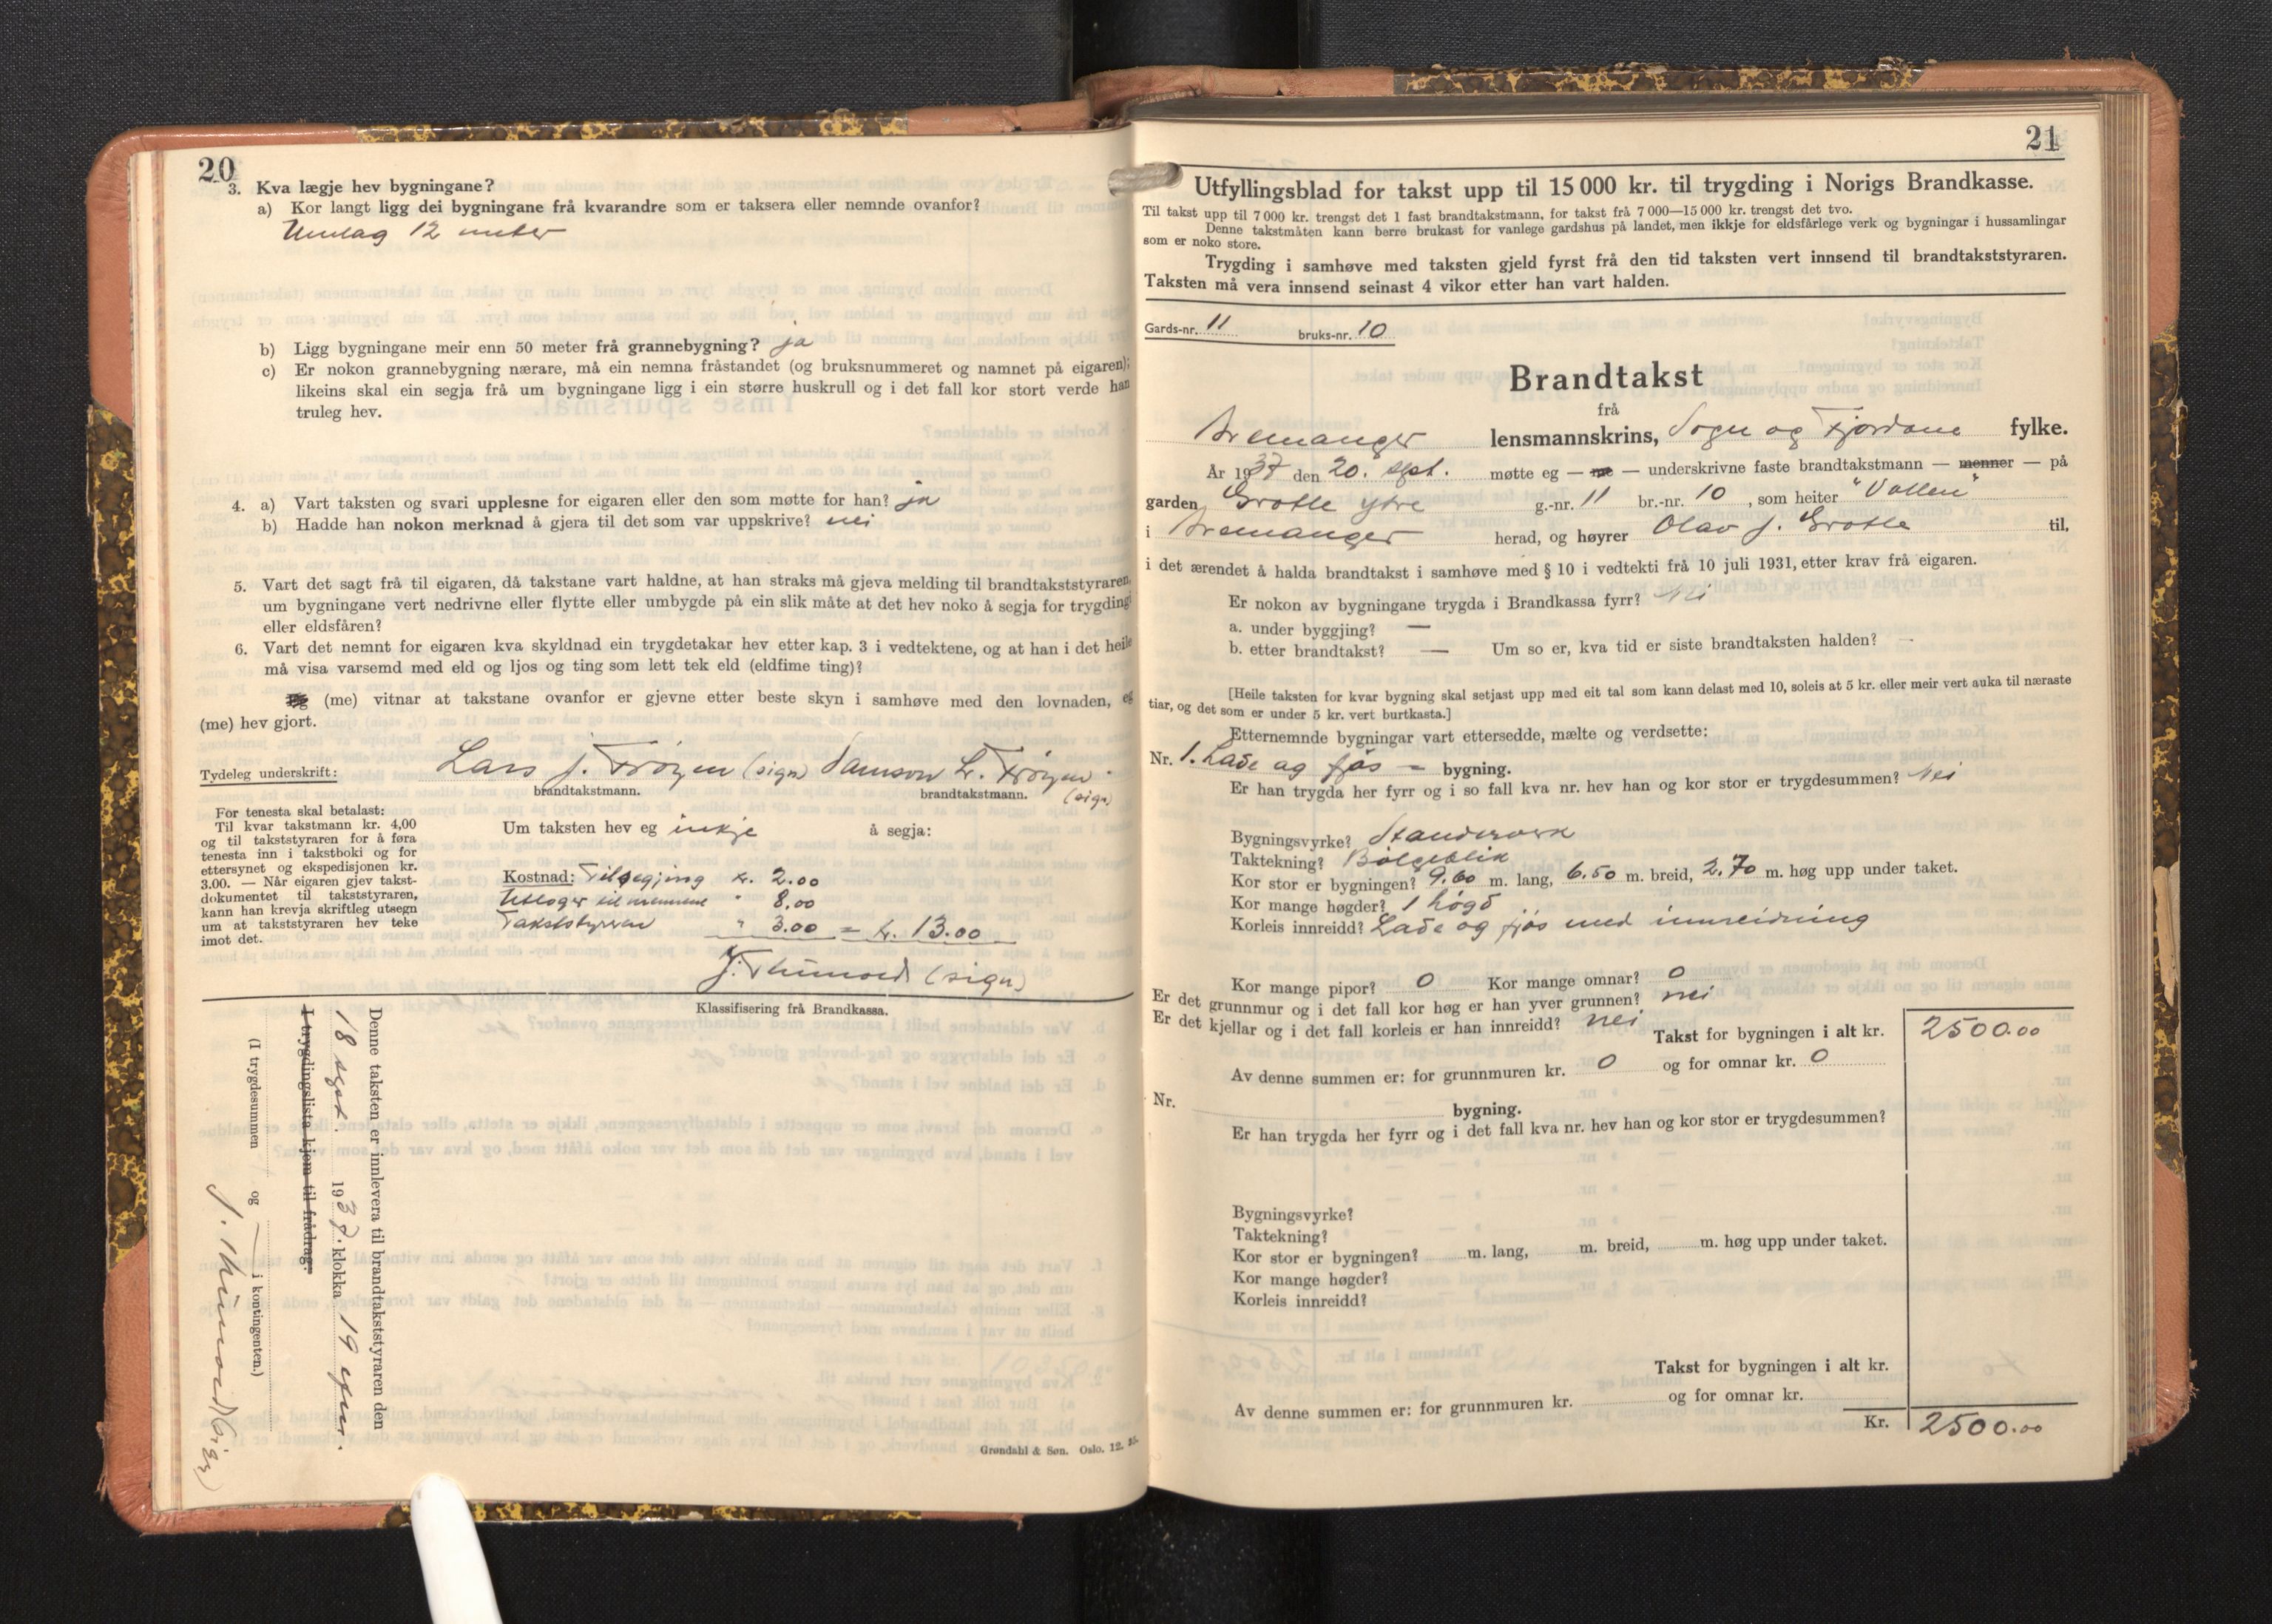 20
3. Kva lægje hev bygningane?
a) Kor langt ligg dei bygningane frå kvarandre som er taksera eller nemnde ovanfor?
Umlag 12 meter
b) Ligg bygningane meir enn 50 meter frå grannebygning? ja
c) Er nokon grannebygning nærare, må ein nemna fråstandet (og bruksnummeret og namnet på eigaren);
likeins skal ein segja frå um bygningane ligg i ein større huskrull og i det fall kor stort verde han
truleg hev.
4. a) Vart taksten og svari upplesne for eigaren eller den som møtte for han? ja
b) Hadde han nokon merknad å gjera til det som var uppskrive? nei
5. Vart det sagt frå til eigaren, då takstane vart haldne, at han straks må gjeva melding til brandtakststyraren,
um bygningane vert nedrivne eller flytte eller umbygde på ein slik måte at det hev noko å segja for trygding
eller eldsfåren?
6. Vart det nemnt for eigaren kva skyldnad ein trygdetakar hev etter kap. 3 i vedtektene, og at han i det heile
må visa varsemd med eld og ljos og ting som lett tek eld (eldfime ting)?
Eg (me) vitnar at takstane ovanfor er gjevne etter beste skyn i samhøve med den lovnaden, eg
(me) hev gjort.
Tydeleg underskrift: Lars J. Frøyen (sign) Samson L. Frøyen
brandtakstmann. brandtakstmann. (sign)
For tenesta skal betalast:
Til kvar takstmann kr. 4,00
og til takststyraren for å føra
tenesta inn i takstboki og for
ettersynet og ekspedisjonen kr.
3.00. — Når eigaren gjev takst-
dokumentet til takststyraren,
kann han krevja skriftleg utsegn
um at takststyraren hev teke
imot det.
Um taksten hev eg inkje å segja:
Kostnad: Tilsegjing kr. 2.00
Utlogor til mennene " 8.00
Takststyraren " 3.00 = kr. 13.00
(sign)
Klassifisering frå Brandkassa.
Denne taksten er innlevera til brandtakststyraren den
18 sept. 1937. klokka 19 efm.
I trygdingslista kjem til frådrag:
(I trygdesummen og — i kontingenten.)
(sign)
Grøndahl & Søn. Oslo. 12. 35.
21
Utfyllingsblad for takst upp til 15 000 kr. til trygding i Norigs Brandkasse.
Til takst upp til 7 000 kr. trengst det 1 fast brandtakstmann, for takst frå 7 000—15 000 kr. trengst det tvo.
Denne takstmåten kann berre brukast for vanlege gardshus på landet, men ikkje for eldsfårlege verk og bygningar i hussamlingar
som er noko store.
Trygding i samhøve med taksten gjeld fyrst frå den tid taksten vert innsend til brandtakststyraren.
Taksten må vera innsend seinast 4 vikor etter han vart halden.
Gards-nr. 11 bruks-nr. 10
Brandtakst
frå
Bremanger lensmannskrins, Sogn og Fjordane fylke.
År 1937 den 20. sept. møtte eg — me — underskrivne faste brandtakstmann — menner — på
garden Grotle ytre g.-nr. 11 br.-nr. 10, som heiter "Vollen"
i Bremanger herad, og høyrer Olav J. Grotle til,
i det ærendet å halda brandtakst i samhøve med § 10 i vedtekti frå 10 juli 1931, etter krav frå eigaren.
Er nokon av bygningane trygda i Brandkassa fyrr? Nei
a. under byggjing? —
b. etter brandtakst? — Um so er, kva tid er siste brandtaksten halden? —
[Heile taksten for kvar bygning skal setjast upp med eit tal som kann delast med 10, soleis at 5 kr. eller meir vert auka til næraste
tiar, og det som er under 5 kr. vert burtkasta.]
Etternemnde bygningar vart ettersedde, mælte og verdsette:
Nr. 1. Lade og fjøs - bygning.
Er han trygda her fyrr og i so fall kva nr. hev han og kor stor er trygdesummen? Nei
Bygningsvyrke? Standerverk
Taktekning? Bølgeblik
Kor stor er bygningen? 9.60 m. lang, 6.50 m. breid, 2.70 m. høg upp under taket.
Kor mange høgder? 1 høgd
Korleis innreidd? Lade og fjøs med innreidning
Kor mange pipor? 0 Kor mange omnar? 0
Er det grunnmur og i det fall kor høg er han yver grunnen? nei
Er det kjellar og i det fall korleis er han innreidd? nei
Takst for bygningen i alt kr. 2500.00
Av denne summen er: for grunnmuren kr. 0 og for omnar kr. 0
Nr. bygning.
Er han trygda her fyrr og i det fall kva nr. hev han og kor stor er trygdesummen?
Bygningsvyrke?
Taktekning?
Kor stor er bygningen? m. lang, m. breid, m. høg upp under taket.
Kor mange høgder?
Korleis innreidd?
Takst for bygningen i alt kr.
Av denne summen er: for grunnmuren kr. og for omnar kr.
Kr. 2500.00